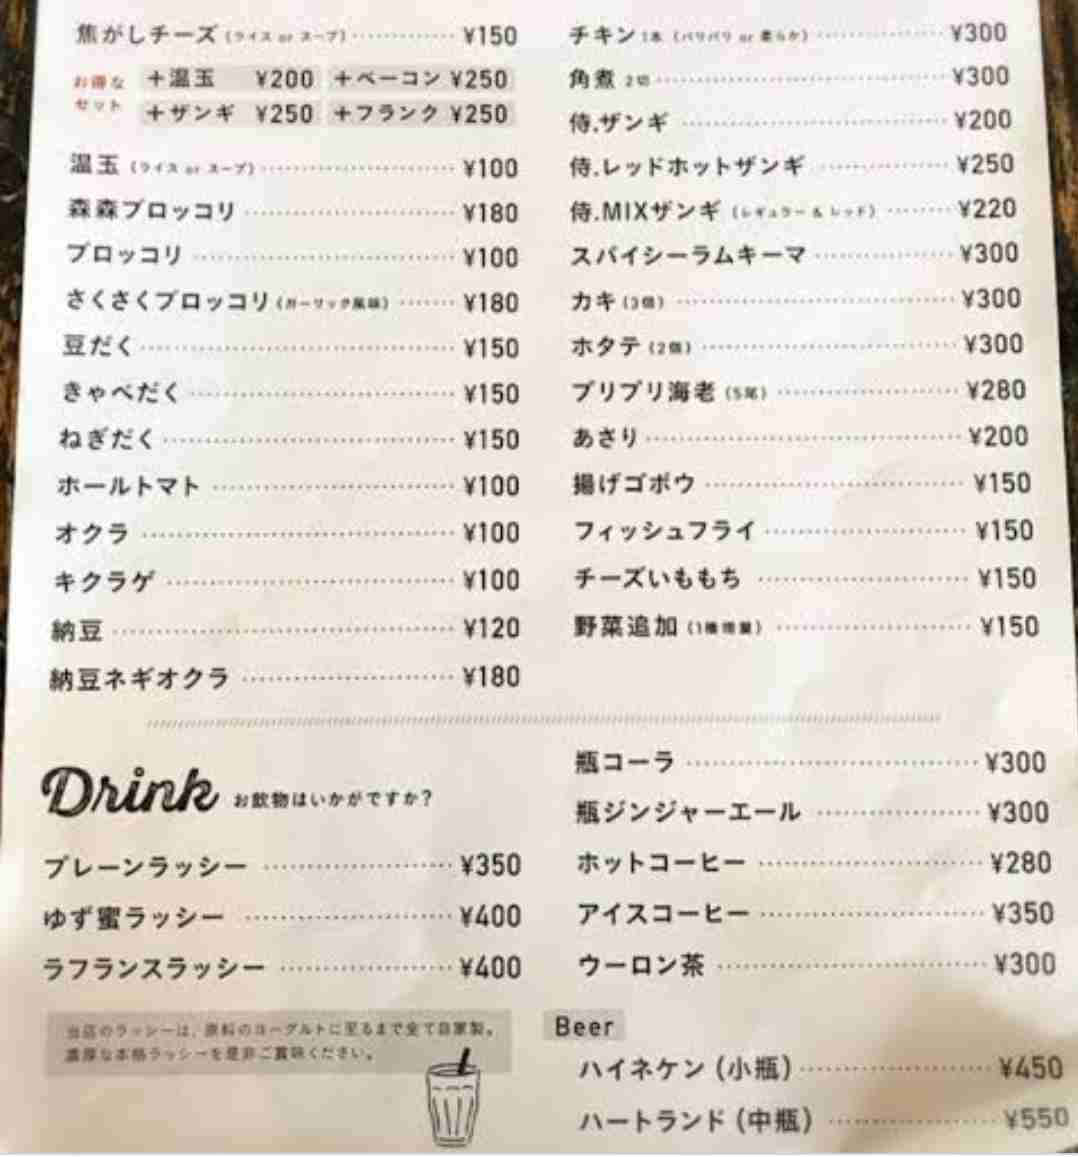 焦がしチーズ (ライス or スープ) ¥150
お得なセット
+温玉 ¥200 +ベーコン ¥250
+ザンギ ¥250 +フランク ¥250
温玉 (ライス or スープ) ¥100
森森ブロッコリ ¥180
ブロッコリ ¥100
さくさくブロッコリ (ガーリック風味) ¥180
豆だく ¥150
きゃべだく ¥150
ねぎだく ¥150
ホールトマト ¥100
オクラ ¥100
キクラゲ ¥100
納豆 ¥120
納豆ネギオクラ ¥180
チキン 1本 (パリパリ or 柔らか) ¥300
角煮 2切 ¥300
侍.ザンギ ¥200
侍.レッドホットザンギ ¥250
侍.MIXザンギ (レギュラー & レッド) ¥220
スパイシーラムキーマ ¥300
カキ (3個) ¥300
ホタテ (2個) ¥300
プリプリ海老 (5尾) ¥280
あさり ¥200
揚げゴボウ ¥150
フィッシュフライ ¥150
チーズいももち ¥150
野菜追加 (1種増量) ¥150
Drink お飲物はいかがですか?
プレーンラッシー ¥350
ゆず蜜ラッシー ¥400
ラフランスラッシー ¥400
当店のラッシーは、原料のヨーグルトに至るまで全て自家製。
濃厚な本格ラッシーを是非ご賞味ください。
瓶コーラ ¥300
瓶ジンジャーエール ¥300
ホットコーヒー ¥280
アイスコーヒー ¥350
ウーロン茶 ¥300
Beer
ハイネケン (小瓶) ¥450
ハートランド (中瓶) ¥550